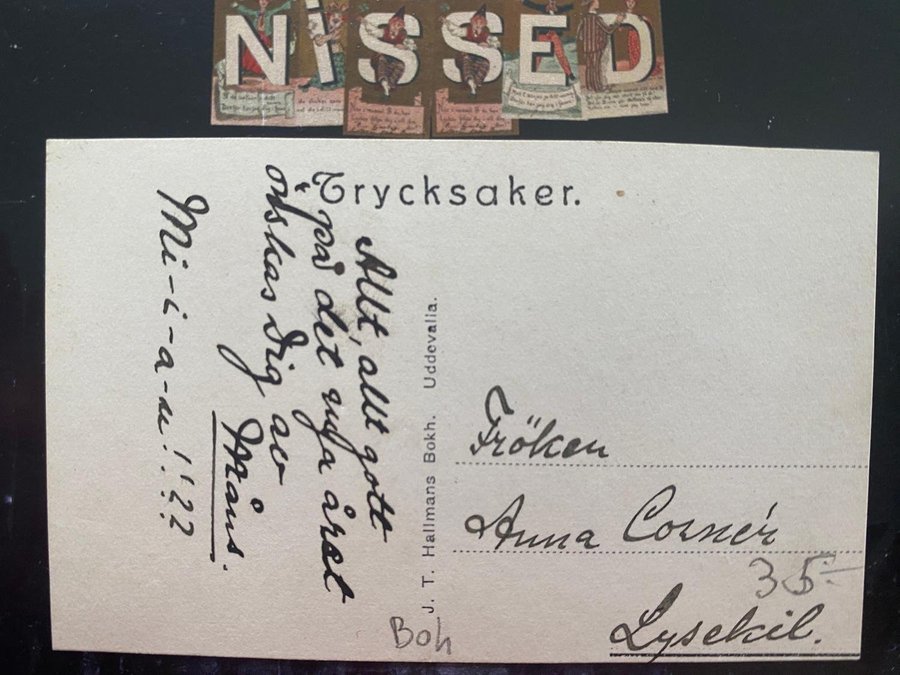 NISSED
Trycksaker.
Allt, allt gott
på det nya året
önskas Dig av
Måns.
Mi-i-a-u!!??
J. T. Hallmans Bokh. Uddevalla.
Fröken
Anna Cornér
Lysekil.
35:-
Boh